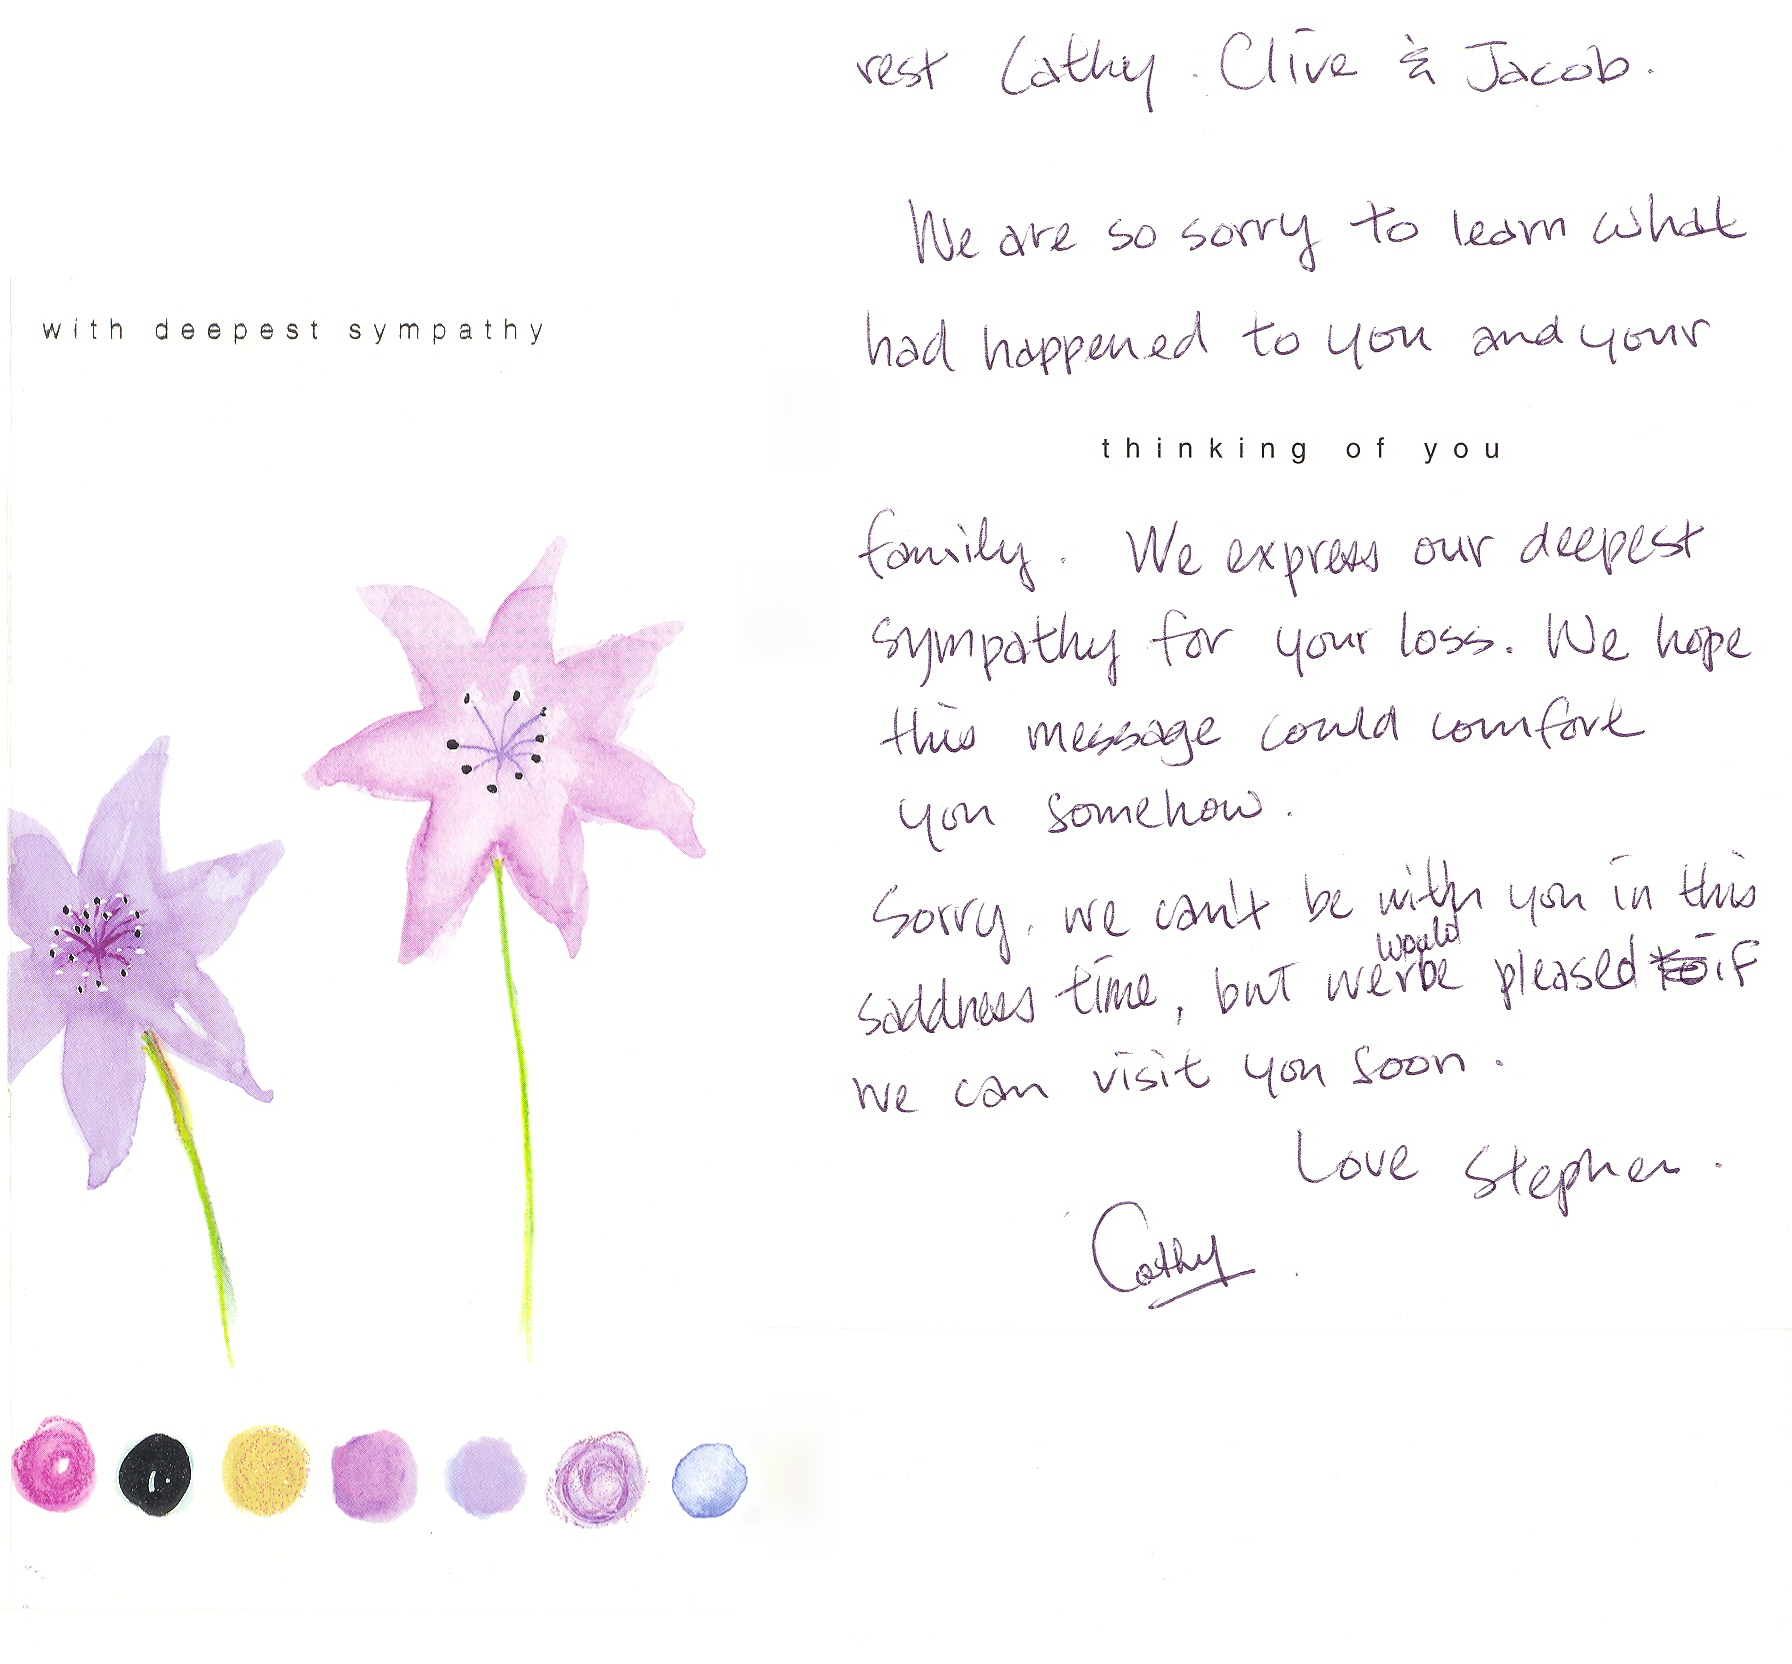 with deepest sympathy
rest Cathy. Clive & Jacob.
We are so sorry to learn what
had happened to you and your
thinking of you
family. We express our deepest
sympathy for your loss. We hope
this message could comfort
you somehow.
Sorry, we can't be with you in this
would
saddness time, but we be pleased to if
we can visit you soon.
Love Stephen.
Cathy